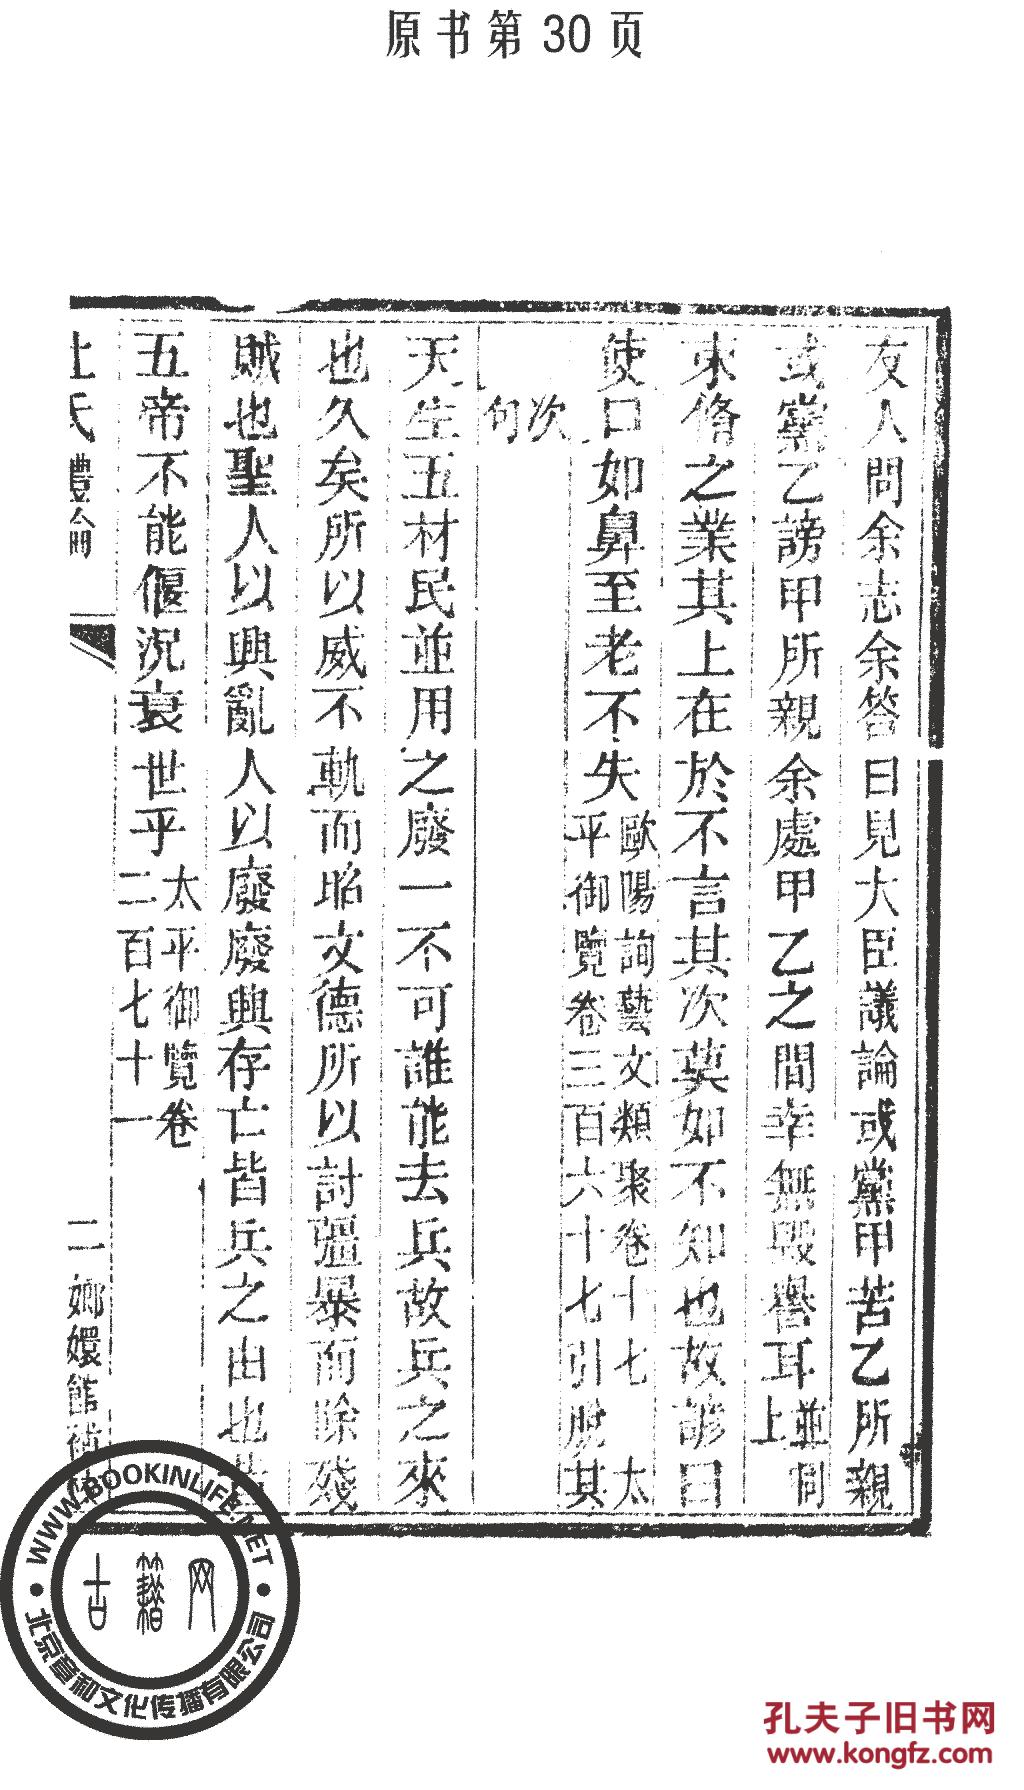 原书第30页
友人問余志余答曰見大臣議論或黨甲苦乙所親
或黨乙謗甲所親余處甲乙之間幸無毀譽耳並同上
束脩之業其上在於不言其次莫如不知也故諺曰
使口如鼻至老不失歐陽詢藝文類聚卷十七 太平御覽卷三百六十七引脫其
次句
天生五材民並用之廢一不可誰能去兵故兵之來
也久矣所以威不軌而昭文德所以討彊暴而除殘
賊也聖人以興亂人以廢廢興存亡皆兵之由也
五帝不能偃況衰世乎太平御覽卷二百七十一
杜氏體論 二 嫏嬛館
WWW.BOOKINLIFE.NET
古籍网
北京章和文化传播有限公司
孔夫子旧书网
www.kongfz.com